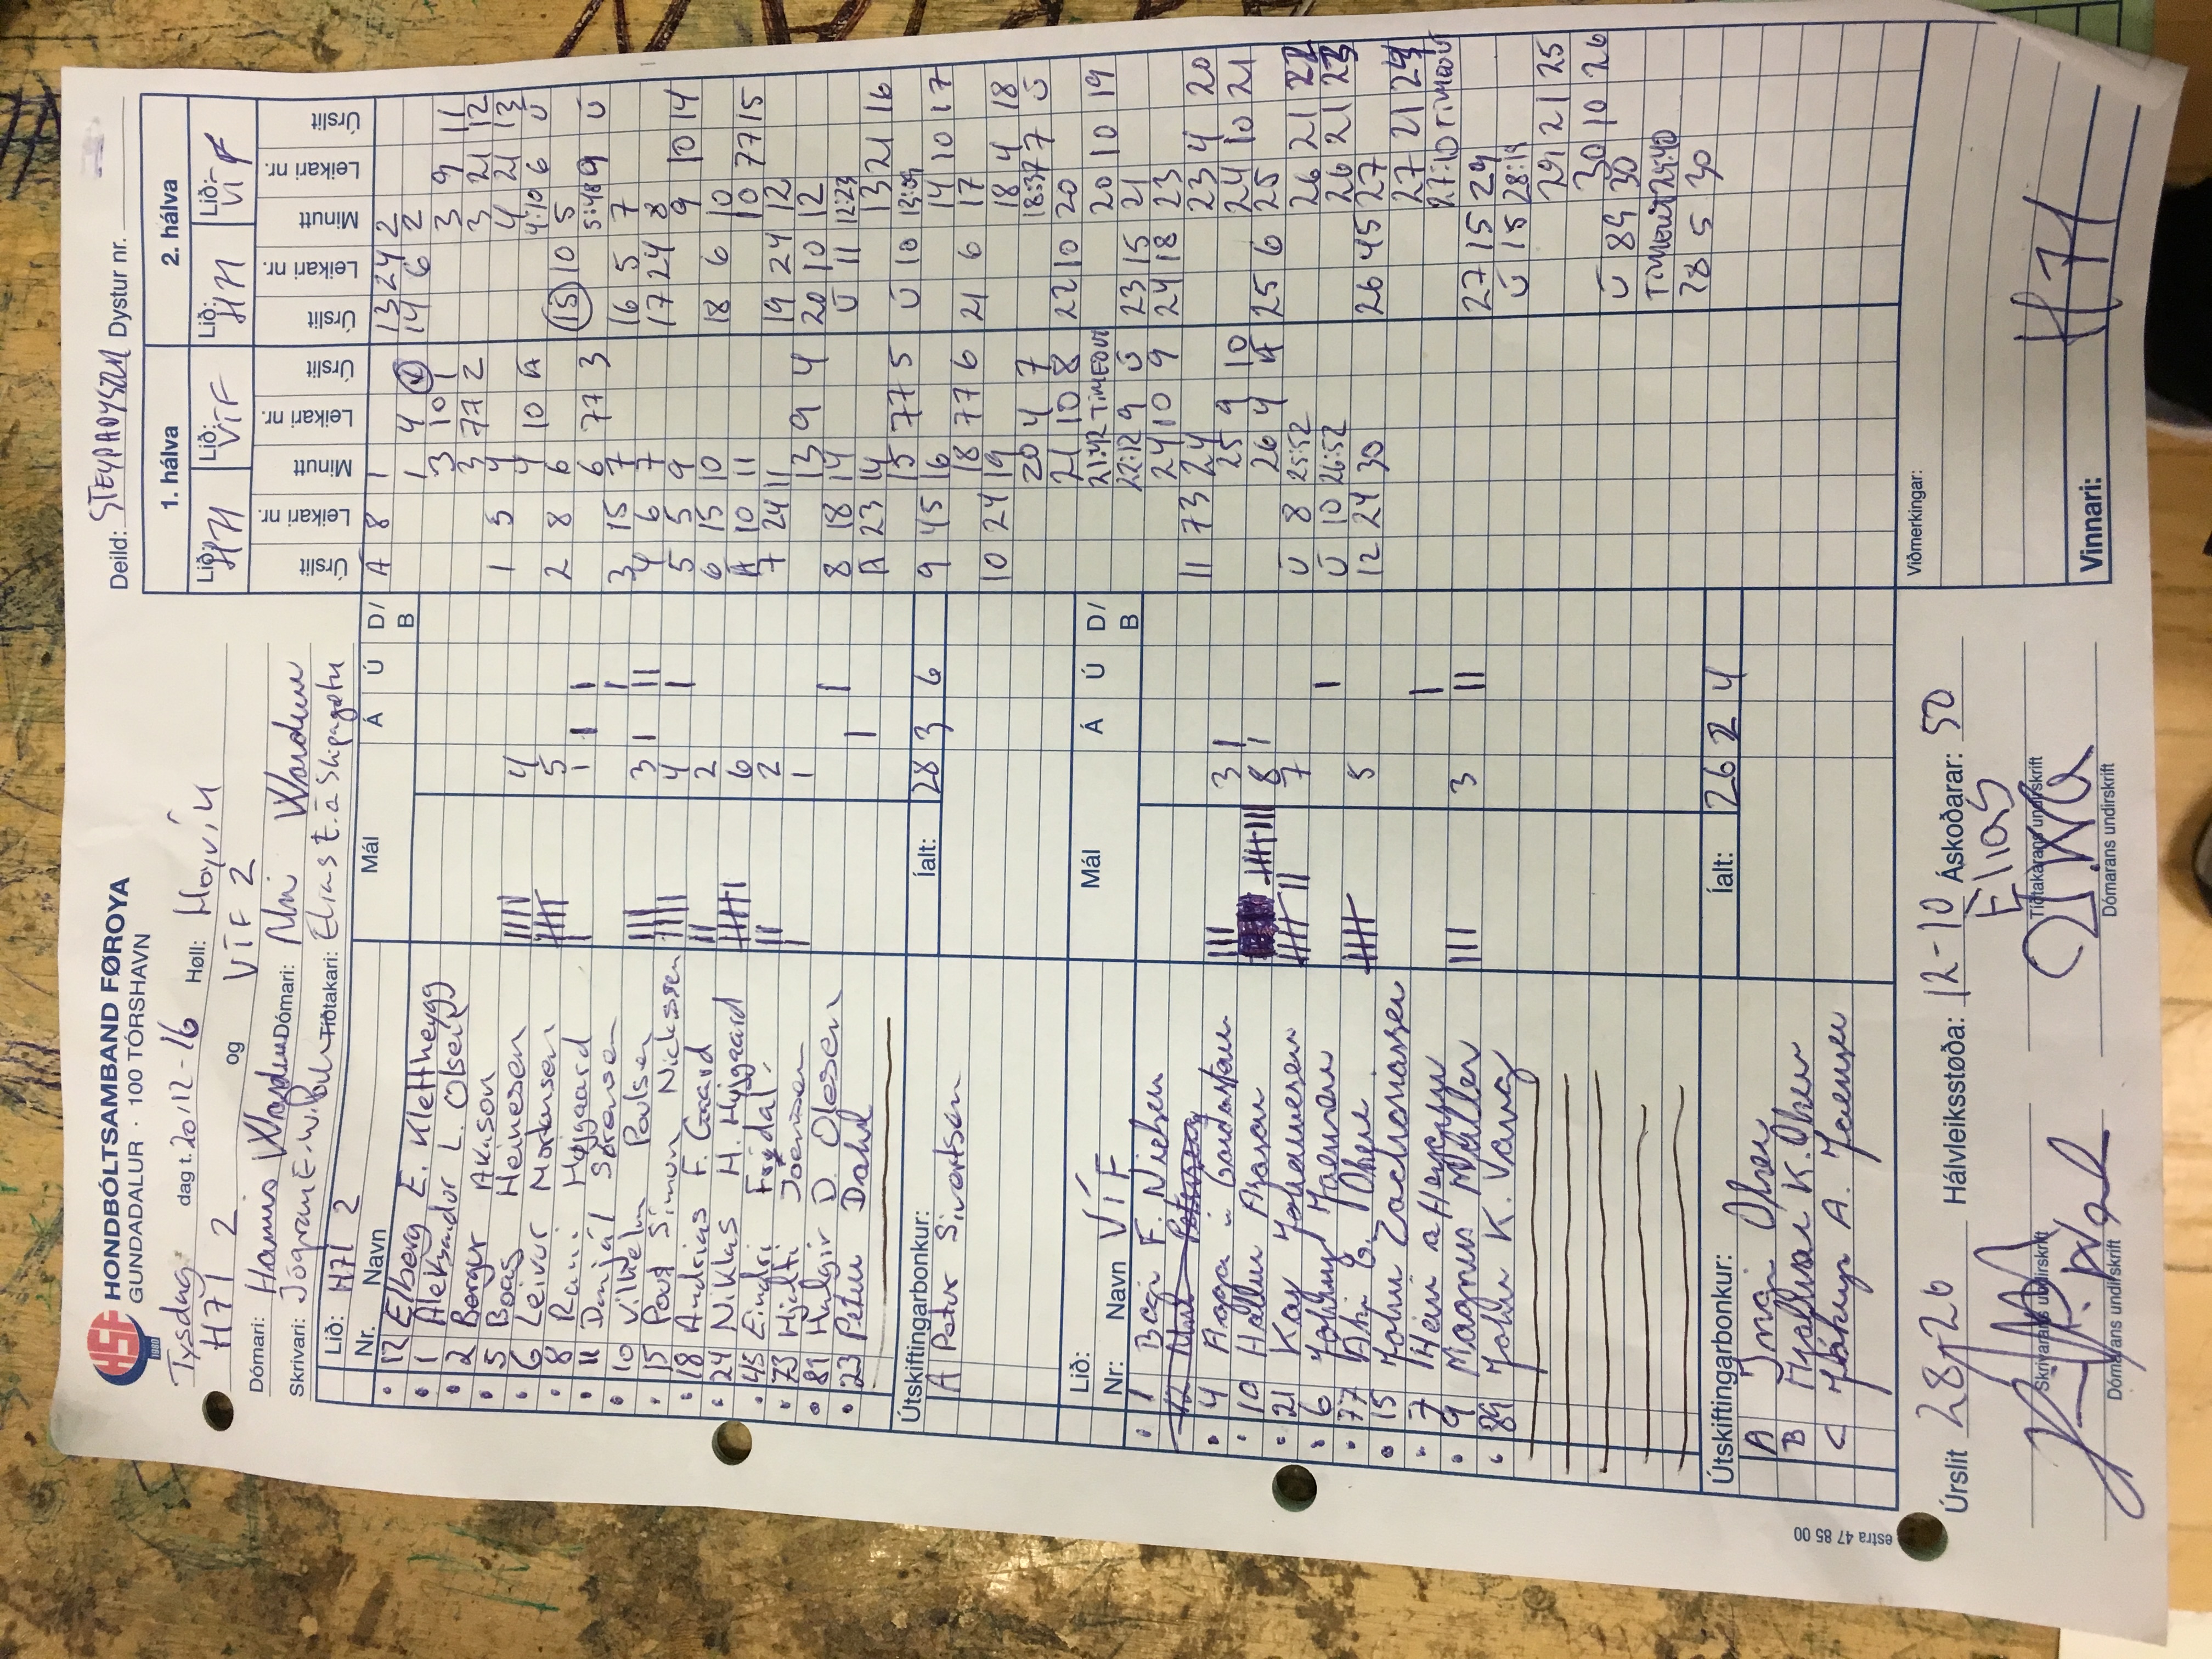 HSF
1980
HONDBÓLTSAMBAND FØROYA
GUNDADALUR · 100 TÓRSHAVN
Tysdag dag t. 20/12-16 Høll: Hoyvík
H71 2 og VÍF 2
Dómari: Hannis Wardum Dómari: Uni Wardum
Skrivari: Jógvan E. W. Poul Tíðtakari: Elias E. á Skipagøtu
Deild: STEYPADYSTUR Dystur nr.
Lið: H71 2
Nr. Navn Mál Á Ú D/B
12 Elberg E. Klettheygg
1 Aleksandur L. Olsen
2 Bergur Akason
5 Boas Heinesen |||| 4
6 Leivur Mortensen 5
8 Rani Højgaard | 1 | |
10 Danjál Sørensen
11 Vilhelm Poulsen ||| 3 | ||
15 Poul Simun Nicksson |||| 4 |
18 Andrias F. Gaard || 2
24 Niklas H. Højgaard 6
45 Eindri Frydal || 2
73 Hjalti Joensen | 1
81 Hulgir D. Olesen |
23 Petur Dahl |
Íalt: 28 3 6
Útskiftingarbonkur:
A Petur Sivertsen
Lið: VÍF
Nr: Navn Mál Á Ú D/B
1 Bogi F. Nielsen
12
4 Aggi í Garðastovu ||| 3 |
10 Hallur Arason 8 |
21 Kaj Johannesen 7
6 Jóhnny Joensen |
77 Ahi G. Olsen 5
15 John Zachariassen
7 Heini a Heygum |
9 Magnus Møller ||| 3 ||
89 John K. Vang
Íalt: 26 2 4
Útskiftingarbonkur:
A Ingi Olsen
B Hjalmar K. Olsen
C Jákup A. Joensen
1. hálva
Lið: H71 Lið: VÍF
Úrslit Leikari nr. Minutt Leikari nr. Úrslit
A 8 1
1 4
3 10 1
3 77 2
1 5 4
4 10 A
2 8 6
6 77 3
3 15 7
4 6 7
5 5 9
6 15 10
A 10 11
7 24 11
13 9 4
8 18 14
A 23 14
15 77 5
9 45 16
18 77 6
10 24 19
20 4 7
21 10 8
21:42 TIMEOUT
22:12 9 Ú
24 10 9
11 73 24
25 9 10
26 4 A
Ú 8 25:52
Ú 10 26:52
12 24 30
2. hálva
Lið: H71 Lið: VÍF
Úrslit Leikari nr. Minutt Leikari nr. Úrslit
13 24 2
14 6 2
3 9 11
3 21 12
4 21 13
4:10 6 Ú
15 10 5
5:48 9 Ú
16 5 7
17 24 8
9 10 14
18 6 10
10 77 15
19 24 12
20 10 12
Ú 11 12:23
13 21 16
Ú 10 13:09
14 10 17
21 6 17
18 4 18
18:37 7 Ú
22 10 20
20 10 19
23 15 21
24 18 23
23 4 20
24 10 21
25 6 25
26 21 22
26 21 23
26 45 27
27 21 24
27:10 TIMEOUT
27 15 29
Ú 15 28:19
29 21 25
30 10 26
Ú 89 30
TIMEOUT 29:40
28 5 30
Úrslit 28-26 Hálvleiksstøða: 12-10 Áskoðarar: 50
Elias
Skrivarans undirskrift Tíðtakarans undirskrift
Dómarans undirskrift Dómarans undirskrift
Viðmerkingar:
Vinnari: H71
estra 47 85 00